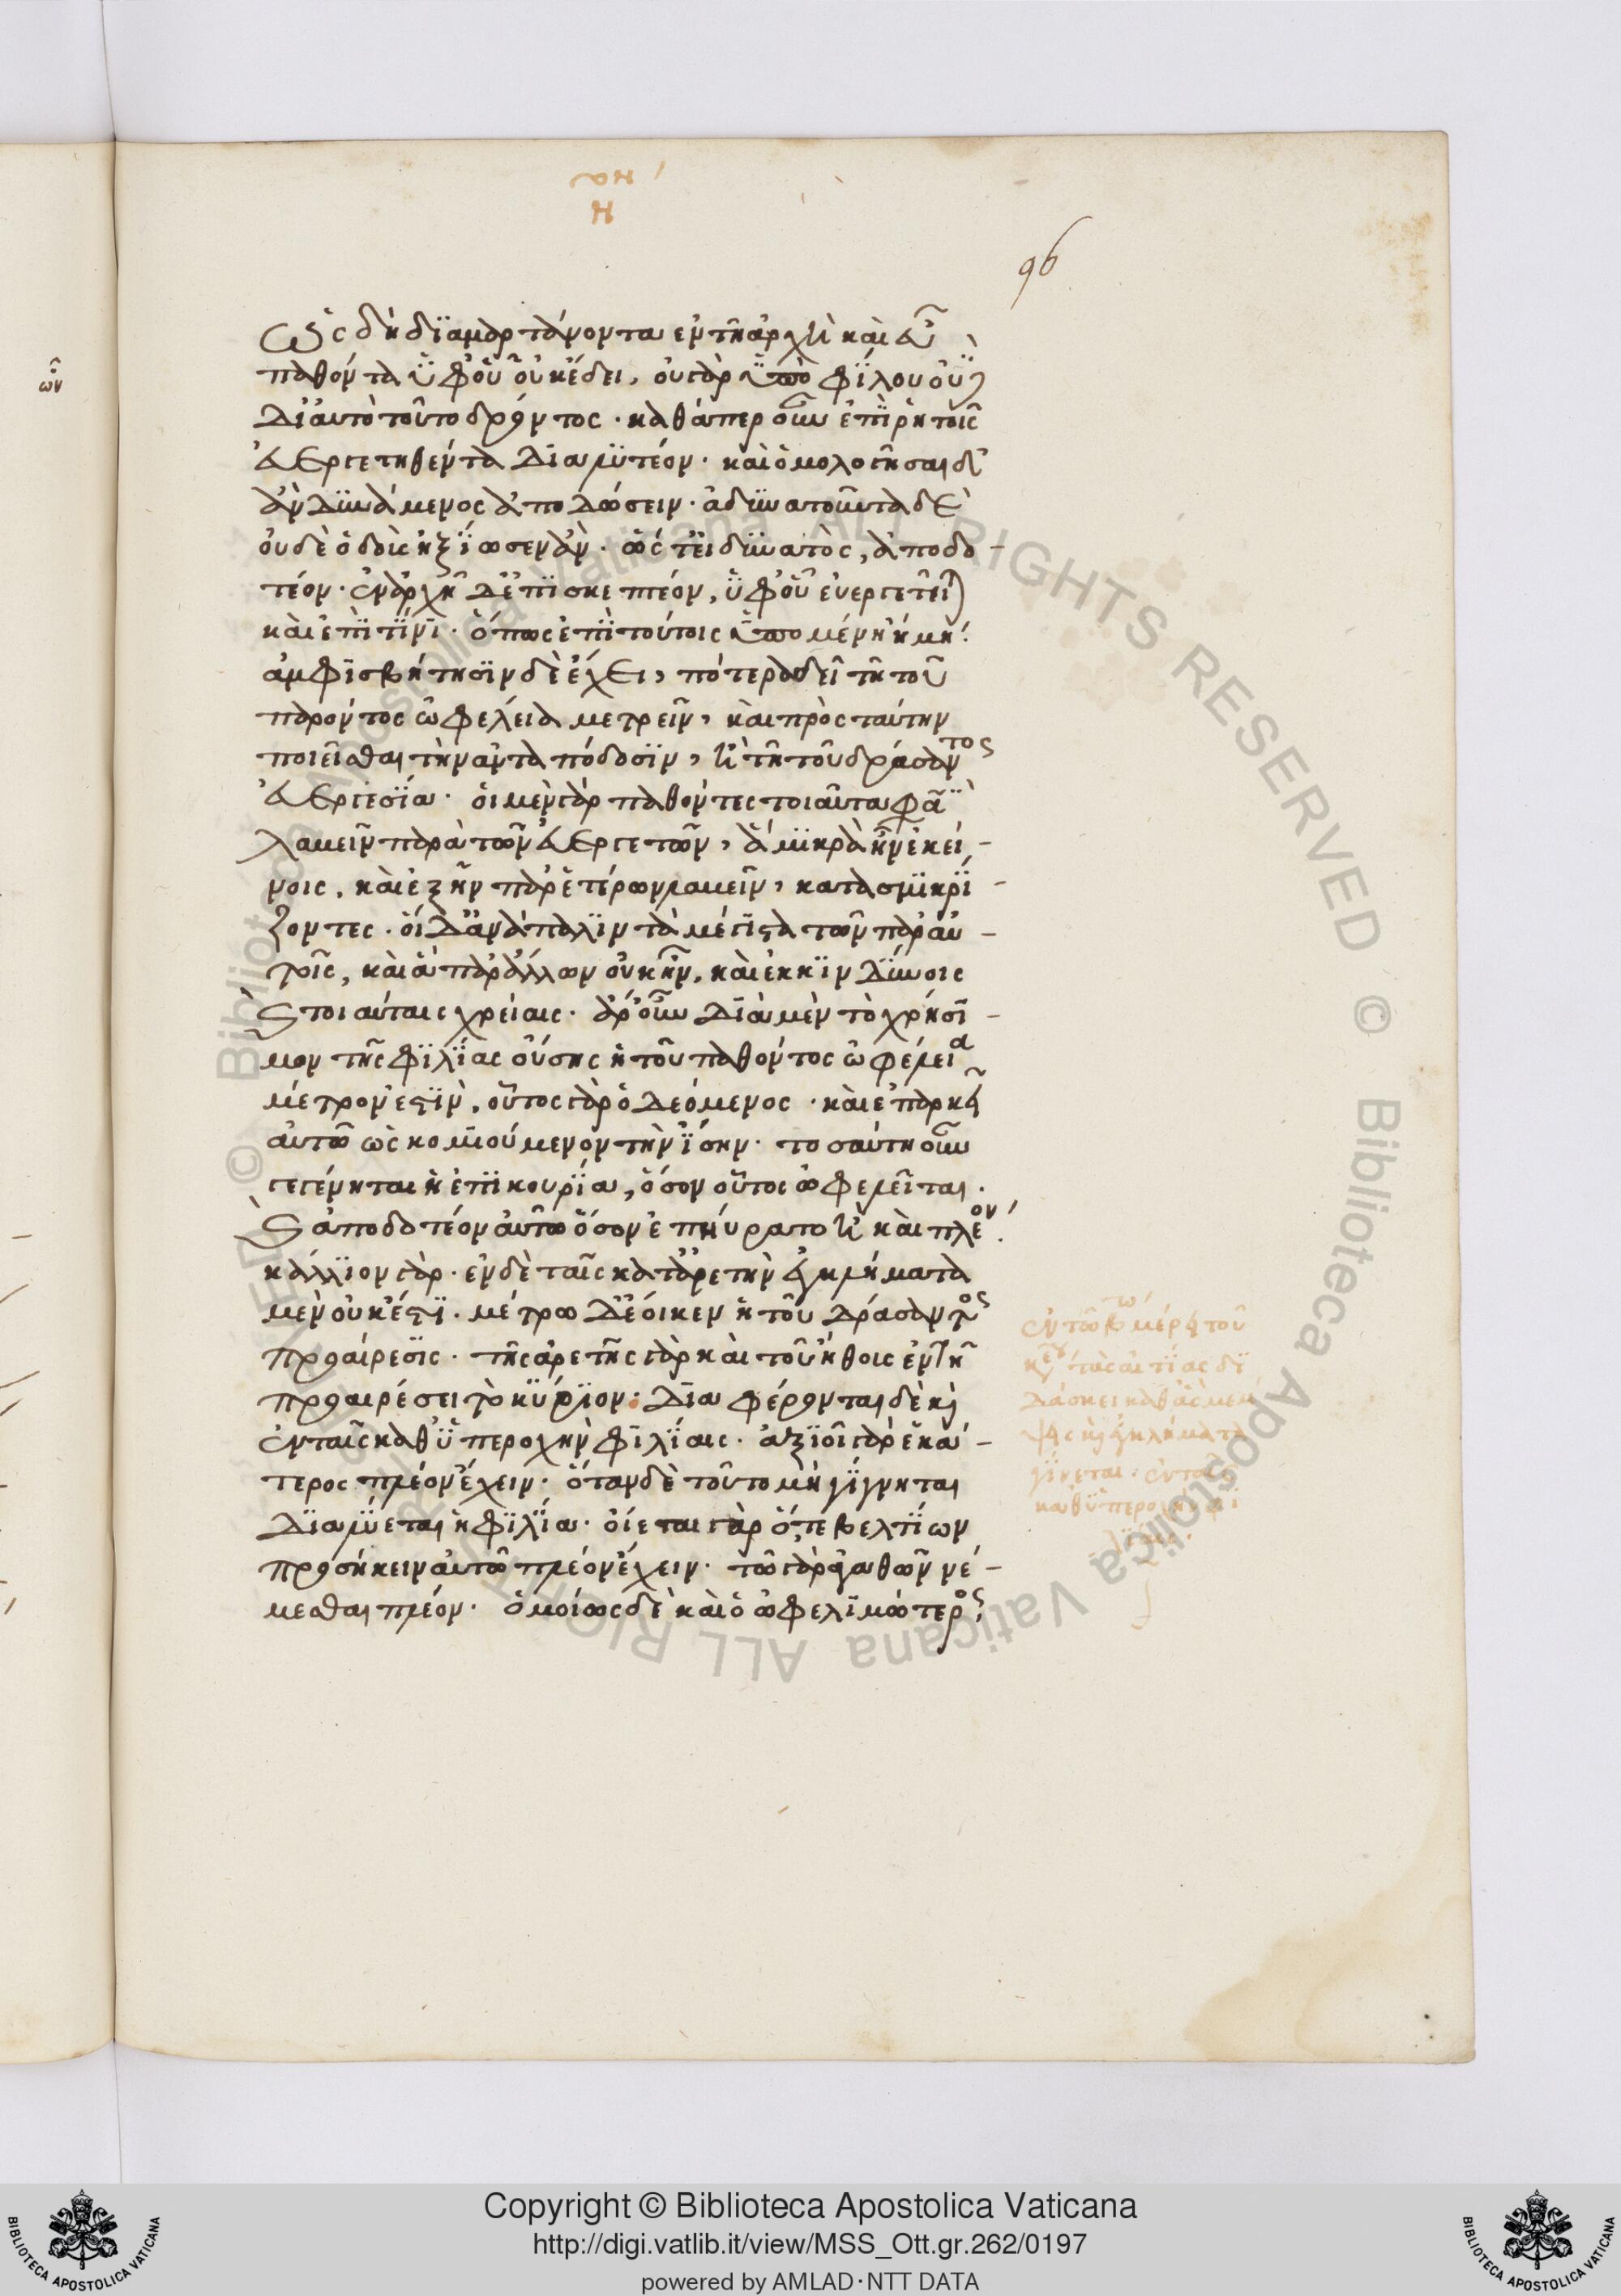 96
ὡς δὴ διαμαρτάνοντα ἐν τῆ ἀρχῆ καὶ εὖ
παθόντα ὑφ' οὗ οὐκ ἔδει, οὐ γὰρ ὑπὸ φίλου οὐ
δι' αὐτὸ τοῦτο δρῶντος· καθάπερ οὖν ἐπὶ ῥητοῖς
εὐεργετηθέντα διαλυτέον· καὶ ὁμολογῆσαι δ'
ἂν δυνάμενος ἀποδώσειν· ἀδυνατοῦντα δὲ
οὐδὲ ὁ δοὺς ἠξίωσεν ἂν· ὥστ' εἰ δυνατὸς, ἀποδο-
τέον· ἐν ἀρχῆ δ' ἐπισκεπτέον, ὑφ' οὗ εὐεργετεῖται
καὶ ἐπὶ τίνι· ὅπως ἐπὶ τούτοις ὑπομένη ἢ μή.
ἀμφισβήτησιν δὲ ἔχει, πότερα δεῖ τῆ τοῦ
παρόντος ὠφελεία μετρεῖν, καὶ πρὸς ταύτην
ποιεῖσθαι τὴν ἀνταπόδοσιν, ἢ τῆ τοῦ δράσαντος
εὐεργεσία· οἱ μὲν γὰρ παθόντες τοιαῦτα φασὶ
λαβεῖν παρὰ τῶν εὐεργετῶν, ἃ μικρὰ ἦν ἐκεί-
νοις, καὶ ἐξῆν παρ' ἑτέρων λαβεῖν, κατασμικρί-
ζοντες· οἱ δ' ἀνάπαλιν τὰ μέγιστα τῶν παρ' αὐ-
τοῖς, καὶ ἃ παρ' ἄλλων οὐκ ἦν, καὶ ἐν κινδύνοις
ἢ τοιαύταις χρείαις· ἆρ' οὖν διὰ μὲν τὸ χρήσι-
μον τῆς φιλίας οὔσης ἡ τοῦ παθόντος ὠφέλεια
μέτρον ἐστὶν, οὗτος γὰρ ὁ δεόμενος· καὶ ἐπαρκεῖ
αὐτῶ ὡς κομιούμενον τὴν ἴσην· τοσαύτη οὖν
γεγένηται ἡ ἐπικουρία, ὅσον οὗτος ὠφελεῖται.
ἢ ἀποδοτέον αὐτῶ ὅσον ἐπηύρατο ἢ καὶ πλέον.
κάλλιον γάρ· ἐν δὲ ταῖς κατ' ἀρετὴν ἐγκλήματα
μὲν οὐκ ἔστι· μέτρω δ' ἔοικεν ἡ τοῦ δράσαντος
προαίρεσις· τῆς ἀρετῆς γὰρ καὶ τοῦ ἤθους ἐν τῆ
προαιρέσει τὸ κύριον· διαφέρονται δὲ καὶ
ἐν ταῖς καθ' ὑπεροχὴν φιλίαις· ἀξιοῖ γὰρ ἑκά-
τερος πλέον ἔχειν· ὅταν δὲ τοῦτο μὴ γίγνηται
διαλύεται ἡ φιλία· οἴεται γὰρ ὅ τε βελτίων
προσήκειν αὐτῶ πλέον ἔχειν· τῶ γὰρ ἀγαθῶν νέ-
μεσθαι πλέον· ὁμοίως δὲ καὶ ὁ ὠφελιμώτερος,
ἐν τῶ μέρει τοῦ
τὰς αἰτίας δι
δάσκει καθ' ἃς μεμ
ψεις καὶ ἐγκλήματα
γίνεται· ἐν ταῖς
καθ' ὑπεροχὴν φι
λίαις.
Copyright © Biblioteca Apostolica Vaticana
http://digi.vatlib.it/view/MSS_Ott.gr.262/0197
powered by AMLAD·NTT DATA